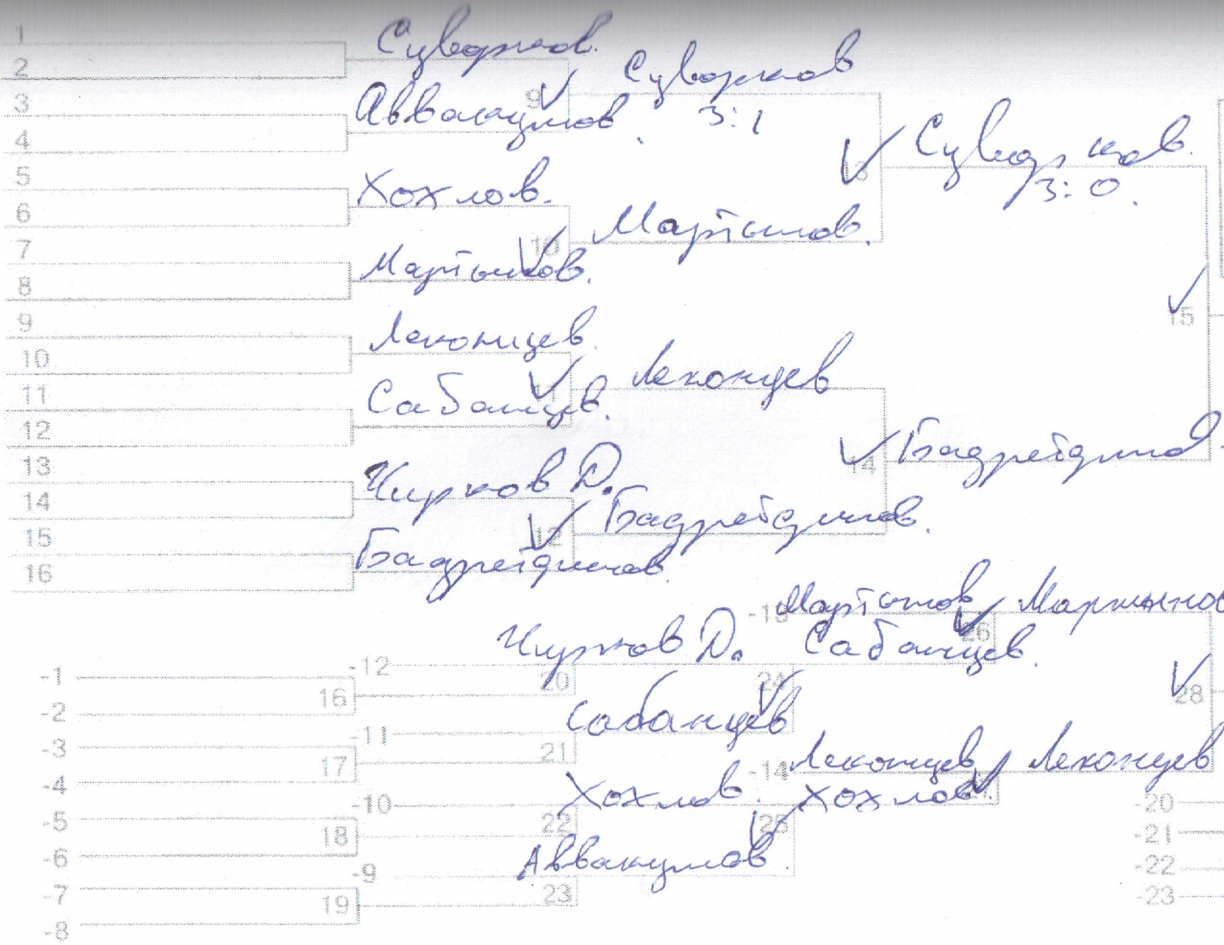 1
2
3
4
5
6
7
8
9
10
11
12
13
14
15
16
Суворков.
Аввакумов.
Хохлов.
Мартынов.
Леконцев.
Сабанцев.
Чирков D.
Бадретдинов.
9
10
11
12
Суворков
3:1
Мартынов.
Леконцев
Бадретдинов.
13
14
Суворков.
3:0.
Бадретдинов.
15
-1
-2
-3
-4
-5
-6
-7
-8
16
17
18
19
-12
-11
-10
-9
Чирков D.
Сабанцев
Хохлов.
Аввакумов.
20
21
22
23
24
25
-13
Мартынов
Сабанцев.
26
-14
Леконцев
Хохлов.
Мартынов
Леконцев
28
-20
-21
-22
-23